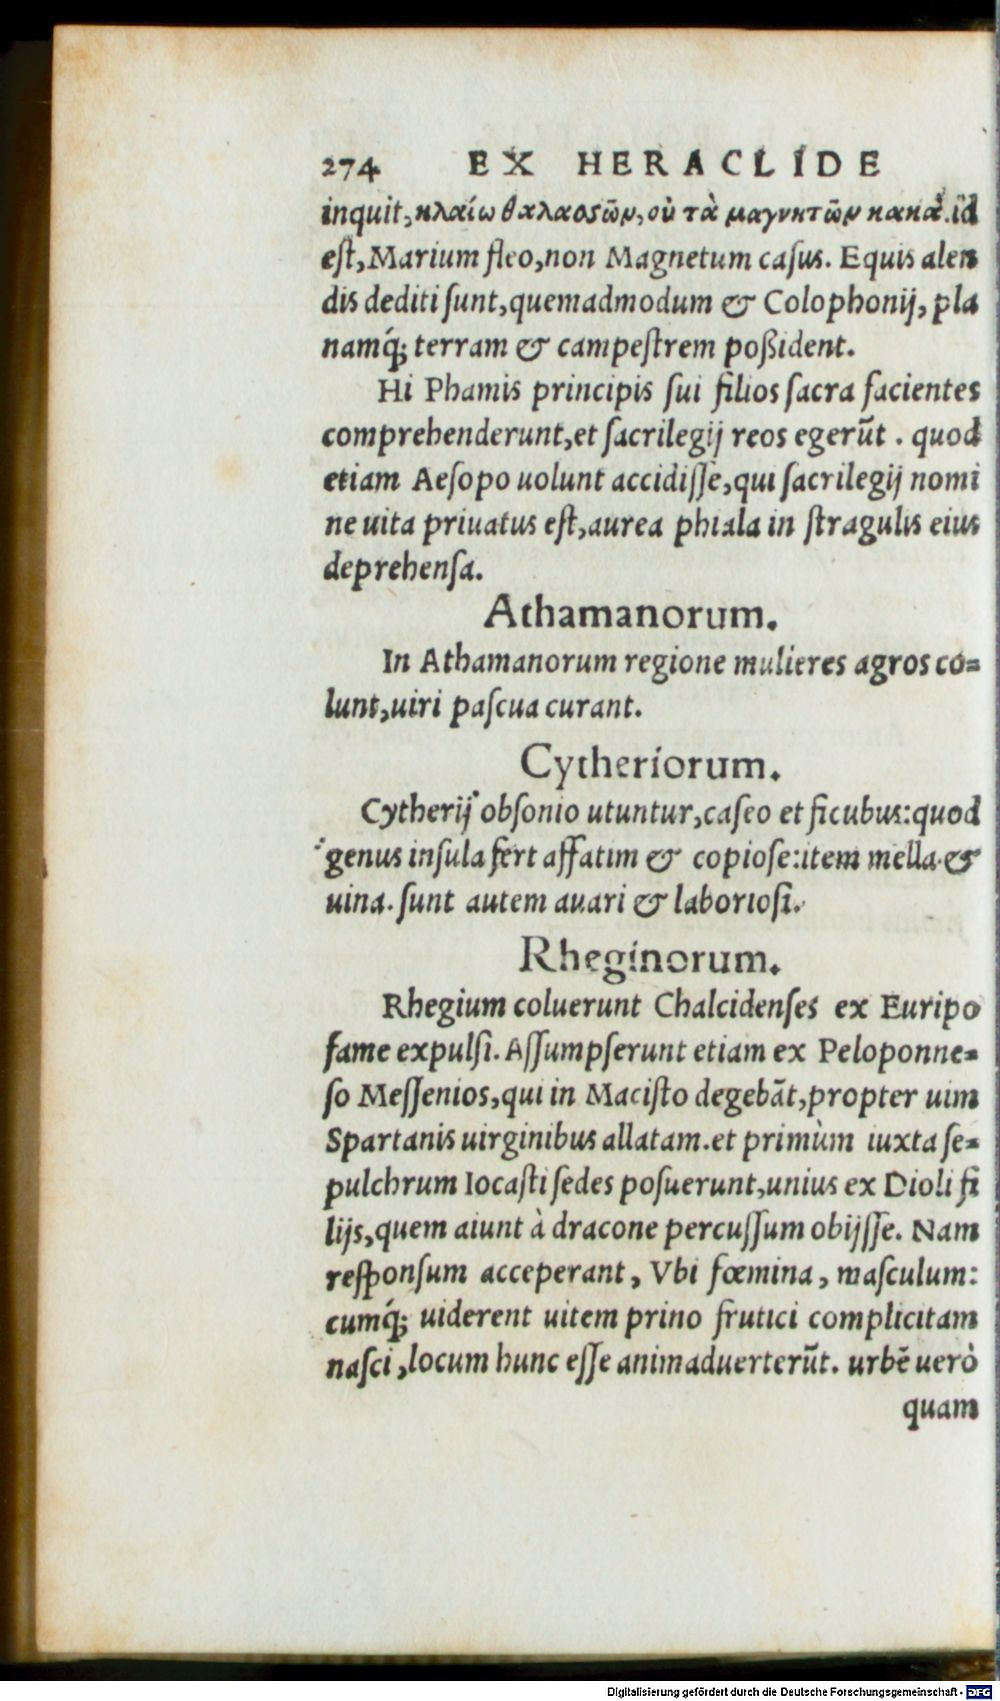 274 EX HERACLIDE
inquit, κλαίω θαλαοσῶν, οὐ τὰ μαγνητῶν κακά. id
eſt, Marium fleo, non Magnetum caſus. Equis alen
dis dediti ſunt, quemadmodum & Colophonij, pla
namq́; terram & campeſtrem poßident.
Hi Phamis principis ſui filios ſacra facientes
comprehenderunt, et ſacrilegij reos egerũt. quod
etiam Aeſopo uolunt accidiſſe, qui ſacrilegij nomi
ne uita priuatus eſt, aurea phiala in ſtragulis eius
deprehenſa.
Athamanorum.
In Athamanorum regione mulieres agros co=
lunt, uiri paſcua curant.
Cytheriorum.
Cytherij obſonio utuntur, caſeo et ficubus: quod
genus inſula fert affatim & copioſe: item mella &
uina. ſunt autem auari & laborioſi.
Rheginorum.
Rhegium coluerunt Chalcidenſes ex Euripo
fame expulſi. Aſſumpſerunt etiam ex Peloponne=
ſo Meſſenios, qui in Maciſto degebãt, propter uim
Spartanis uirginibus allatam. et primùm iuxta ſe=
pulchrum Iocaſti ſedes poſuerunt, unius ex Dioli fi
lijs, quem aiunt à dracone percuſſum obijſſe. Nam
reſponſum acceperant, Vbi fœmina, maſculum:
cumq́; uiderent uitem prino frutici complicitam
naſci, locum hunc eſſe animaduerterũt. urbẽ uerò
quam
Digitalisierung gefördert durch die Deutsche Forschungsgemeinschaft - DFG